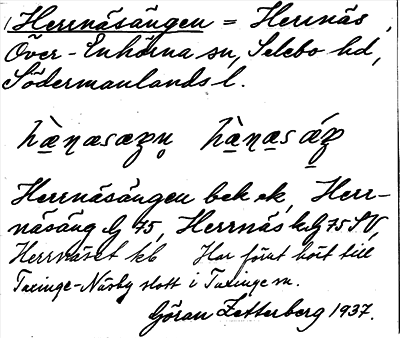 Herrnäsängen = Herrnäs,
Över-Enhörna sn, Selebo hd,
Södermanlands l.
Herrnäsängen bek ek, Herr-
näsäng G 75, Herrnäs k G 75 SV,
Herrnäset kb Har förut hört till
Taxinge-Näsby slott i Taxinge sn.
Göran Zetterberg 1937.